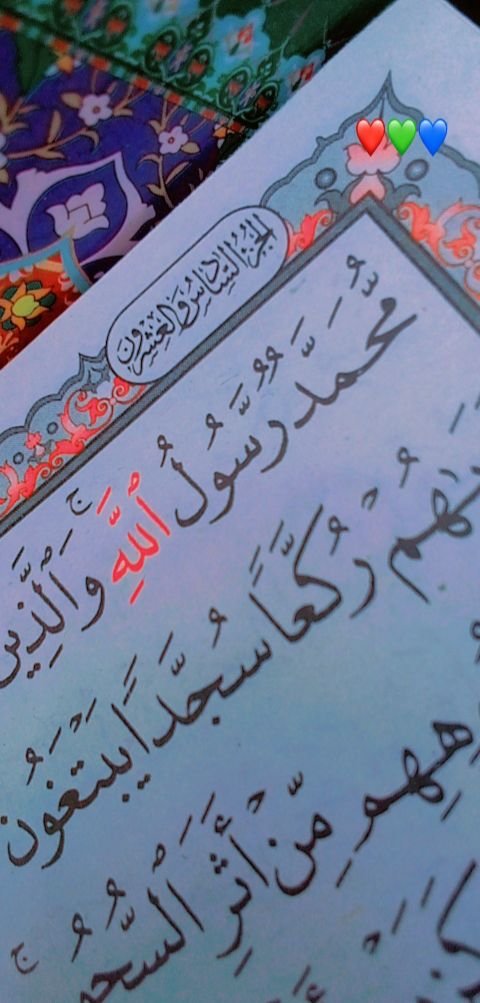 الجزء السادس والعشرون
مُّحَمَّدٌ رَّسُولُ ٱللَّهِ ۚ وَٱلَّذِينَ
رُكَّعًا سُجَّدًا يَبْتَغُونَ
مِّنْ أَثَرِ ٱلسُّجُو